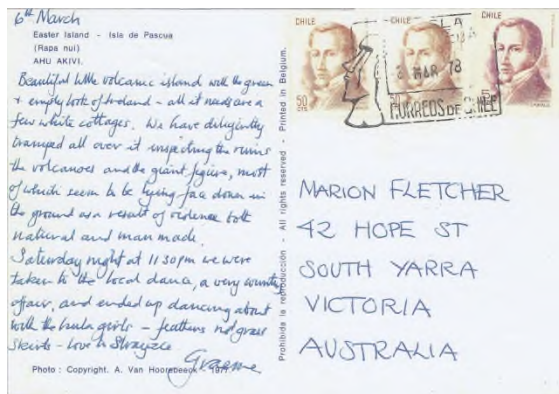 6th March
Easter Island - Isla de Pascua
(Rapa nui)
AHU AKIVI.
Beautiful little volcanic island with the green
+ empty look of Ireland - all it needs are a
few white cottages. We have diligently
tramped all over it inspecting the ruins
the volcanoes and the giant figures, most
of which seem to be lying face down in
the ground as a result of violence both
natural and man made.
Saturday night at 11 30pm we were
taken to the local dance, a very country
affair, and ended up dancing about
with the hula girls - feathers not grass
skirts - love to
Graeme
Photo : Copyright. A. Van Hoorebeeck - 1977.
Prohibida la reproducción - All rights reserved - Printed in Belgium.
CHILE
50
CTS.
CHILE
50
CHILE
MAR 78
CORREOS DE CHILE
MARION FLETCHER
42 HOPE ST
SOUTH YARRA
VICTORIA
AUSTRALIA